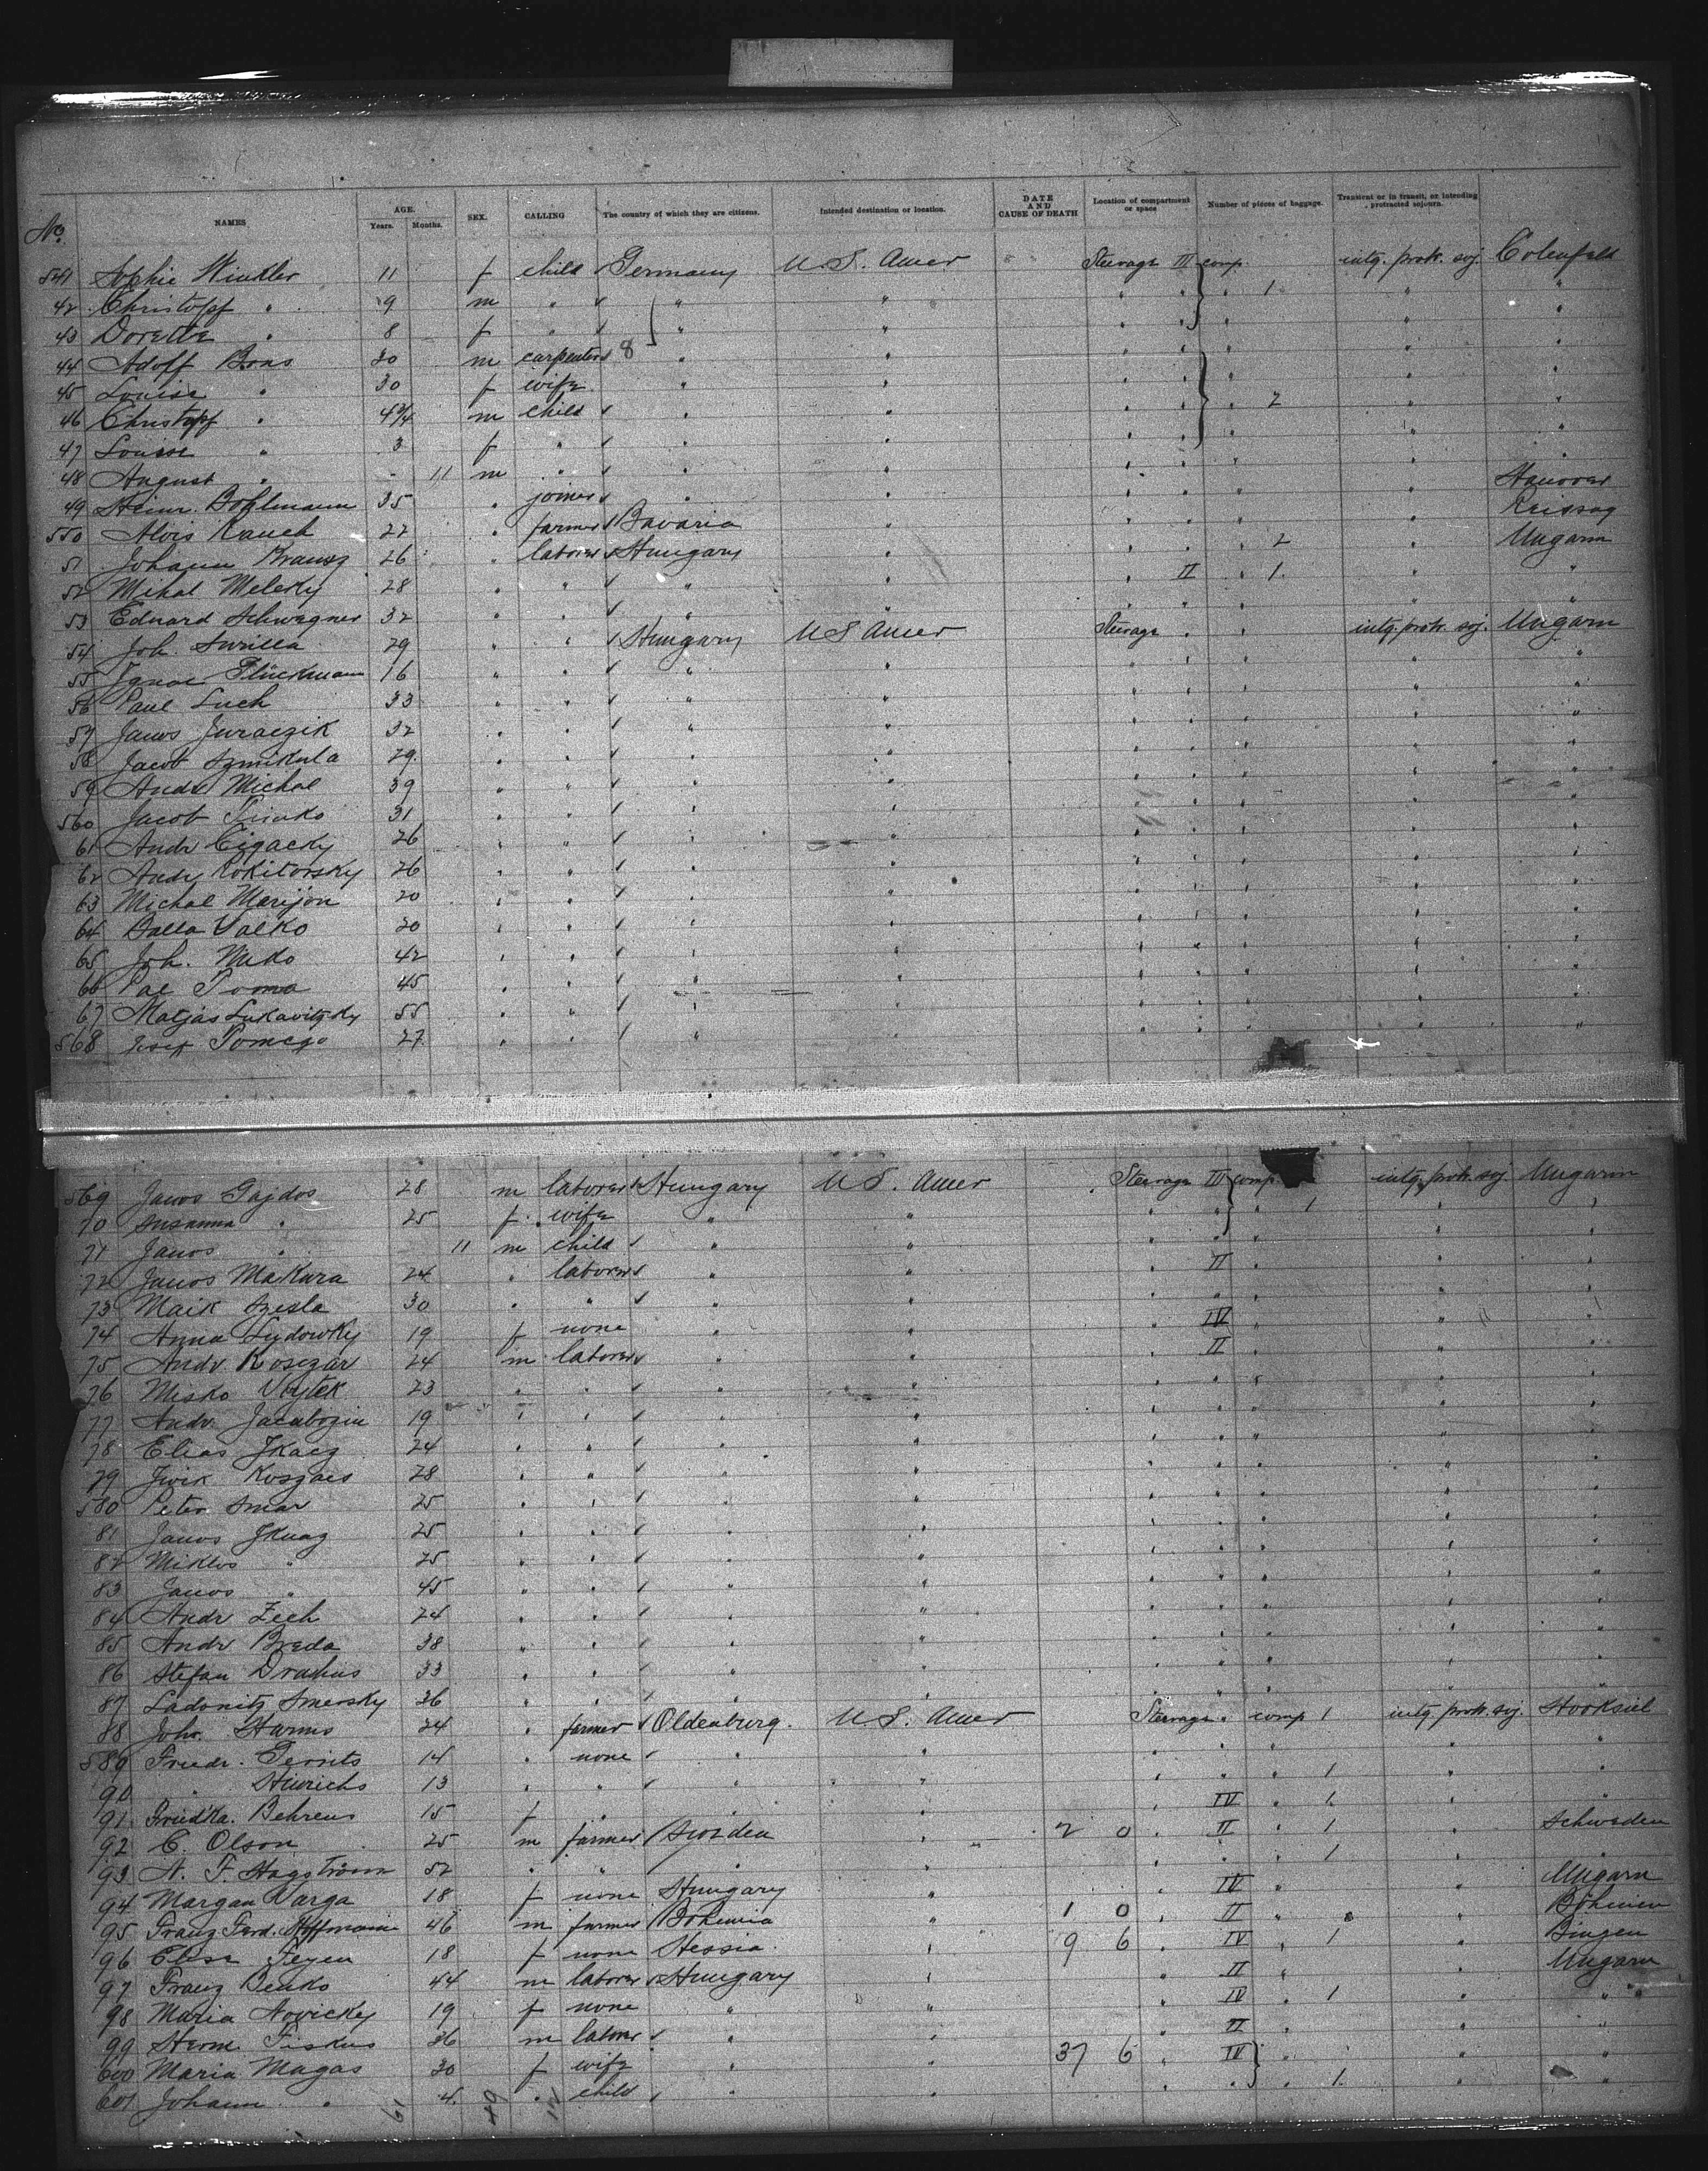 No. NAMES AGE. Years. Months. SEX. CALLING The country of which they are citizens. Intended destination or location. DATE AND CAUSE OF DEATH Location of compartment or space Number of pieces of baggage. Transient or in transit, or intending protracted sojourn.
541 Sophie Winkler 11 f child Germany U.S. Amer Steerage III comp. intg. protr. soj.
42 Christopf " 9 m " " " " " " 1 " "
43 Dorette " 8 f " " " " " " " "
44 Adolf Bons 30 m carpenter 8 " " " " " " "
45 Louise " 30 f wife " " " " " " "
46 Christopf " 4 3/4 m child " " " " " 2 " "
47 Louise " 3 f " " " " " " " "
48 August " - 11 m " " " " " " " "
49 Heinr. Bohlmann 35 " joiner " " " " " " Hanover
550 Alois Rauch 22 " farmer Bavaria " " " " "
51 Johann Krausz 26 " laborer Hungary " " " " 2 " Ungarn
52 Mihal Melesky 28 " " " " " II " 1 " "
53 Eduard Schwegner 32 " " " " " " " " "
54 Joh. 29 " " Hungary U.S. Amer Steerage " " intg. protr. soj. Ungarn
55 Ignac 16 " " " " " " " " "
56 Paul Luch 33 " " " " " " " " "
57 Janos Juraczik 32 " " " " " " " " "
58 Jacob Szmikula 29 " " " " " " " " "
59 Andr Michal 39 " " " " " " " " "
560 Jacob 31 " " " " " " " " "
61 Andr Cigacky 26 " " " " " " " " "
62 Andr Rokitovsky 26 " " " " " " " " "
63 Michal Marijon 20 " " " " " " " " "
64 Balla Valko 20 " " " " " " " " "
65 Joh. 42 " " " " " " " " "
66 Pal Toma 45 " " " " " " " " "
67 Matjas Lukavitzky 55 " " " " " " " " "
568 Josef 27 " " " " " " " " "
569 Janos Gajdos 28 m laborer Hungary U.S. Amer Steerage III comp intg. protr. soj. Ungarn
70 Susanna " 25 f wife " " " " " 1 " "
71 Janos " 11 m child " " " " " " "
72 Janos Makara 24 " laborer " " " II " " "
73 Maik Szesla 30 " " " " " " " " "
74 Anna Lydowky 19 f none " " " IV " " "
75 Andr. Kosezar 24 m laborer " " " II " " "
76 Misko Vojtek 23 " " " " " " " " "
77 Andr. 19 " " " " " " " " "
78 Elias 24 " " " " " " " " "
79 28 " " " " " " " " "
580 Peter Smar 25 " " " " " " " " "
81 Janos 25 " " " " " " " " "
82 Miklos " 25 " " " " " " " " "
83 Janos " 45 " " " " " " " " "
84 Andr Zech 24 " " " " " " " " "
85 Andr Breda 38 " " " " " " " " "
86 Stefan Drahus 33 " " " " " " " " "
87 Smersky 36 " " " " " " " " "
88 Joh. Harms 24 " farmer Oldenburg. U.S. Amer Steerage " comp 1 intg. protr. soj. Hooksiel
589 Friedr. Gerrits 14 " none " " " " " " "
90 " Hinrichs 13 " " " " " " " 1 " "
91 Friedka. Behrens 15 f " " " " IV " 1 " "
92 C. Olson 25 m farmer Sweden " 2 0 " II " 1 " Schweden
93 N. F. Hagström 52 " " " " " " " 1 " "
94 Margan Varga 18 f none Hungary " " IV " " Ungarn
95 Franz Ferd. Hoffmann 46 m farmer Bohemia " 1 0 " II " " " Böhmen
96 Elise Feyen 18 f none Hessia " 9 6 " IV " 1 " Bingen
97 Franz Benko 44 m laborer Hungary " " II " Ungarn
98 Maria Novicky 19 f none " " " IV " 1 " "
99 Herm Fiskus 36 m laborer " " " II " " "
600 Maria Magas 30 f wife " " 37 6 " IV " " "
601 Johann " 4 " child " " " " " 1 " "
61 49 12